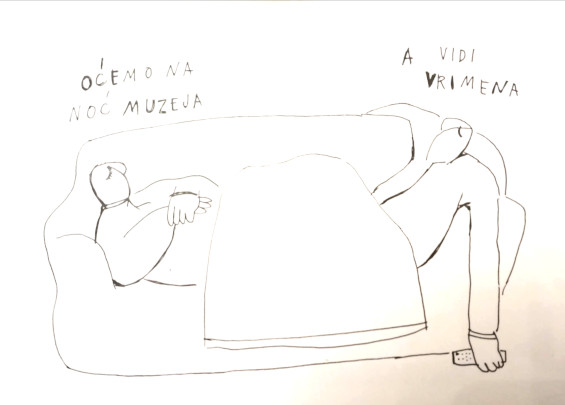 OĆEMO NA
NOĆ MUZEJA
A VIDI
VRIMENA